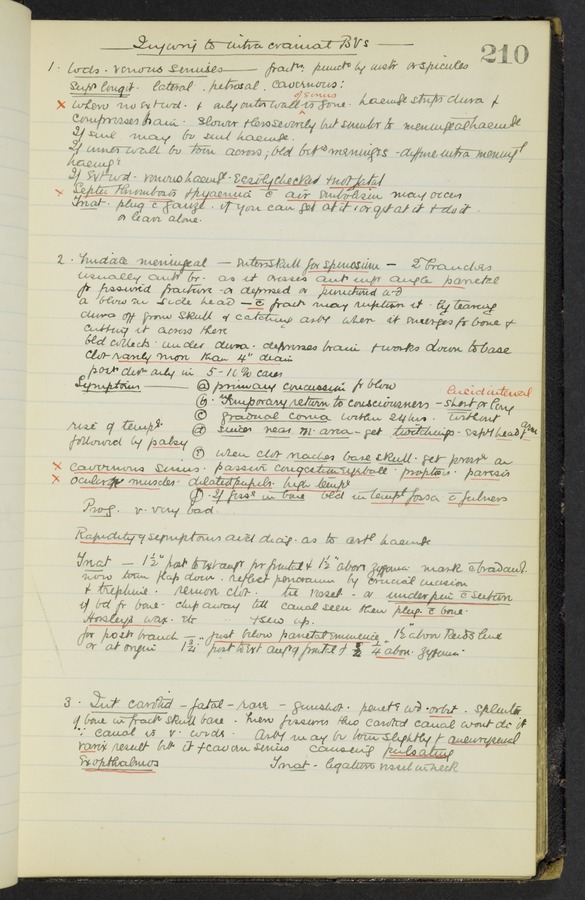 Injuries to intra cranial BVs
210
1. Wds. venous sinuses — fract, punct by instr or spicules
Supr longit. lateral. petrosal. cavernous:
of sinus
x where no ext wd. & only outer wall is gone. haemge strips dura &
compresses brain. slower & less severely but similar to meningeal haemge
If sml may be sml haemge.
If inner wall be torn across, bld betn meninges - diffuse intra meningl
haemge
If Ext wd. venous haemge. Easily checked & not fatal
x Septic thrombosis & pyaemia c air Embolism may occur
Treat. plug c gauze. if you can get at it, or get at it & do it
or leave alone.
2. Middle meningeal — enters skull for spinosum — 2 branches
usually antr br. as it crosses ant infr angle parietal
fr fissured fracture or depressed or punctured wd
a blow on side head — c fract may rupture it. by tearing
dura off from skull & catching arty when it emerges fr bone &
cutting it across there
bld collects under dura. depresses brain & works down to base
clot rarely more than 4" diam
postr clot only in 5-10% cases
Symptoms — (a) primary concussion fr blow
Lucid interval
(b) Temporary return to consciousness - short or long
(c) gradual coma within 24 hrs. without
rise of tempr. (d) since near m. area - get twitchings - esply head & arm
followed by palsy
(e) when clot reaches base skull. get pressr on
x cavernous sinus. passive congestion eyeball. proptosis. paresis
x ocular muscles. dilated pupils. high tempr
(f) If fiss in bone bld in templ fossa c fulness
Prog. v. very bad
Rapidity of symptoms aids diag. as to artl haemge
Treat — 1½" post to ext angr pr frontal & 1½" above zygoma mark c bradawl
now turn flap down. reflect pericranium by crucial incision
& trephine. remove clot. tie vessel. or underpin c suture
if bd fr bone chip away till canal seen then plug c bone.
Horsleys wax. etc & sew up.
for postr branch — just below parietal eminence 1½ above Reids line
or at origin 1¾" post to ext ang of frontal & ¾ above zygoma.
3. Int carotid — fatal — rare — gunshot. penetg wd orbit. splinter
of bone in fract skull base. Mere fissures thro carotid canal wont do it
∵ canal is v. wide. Arty may be torn slightly & aneurysmal
varix result betn it & cavern sinus causing pulsating
Exopthalmos Treat - ligature vessel in neck